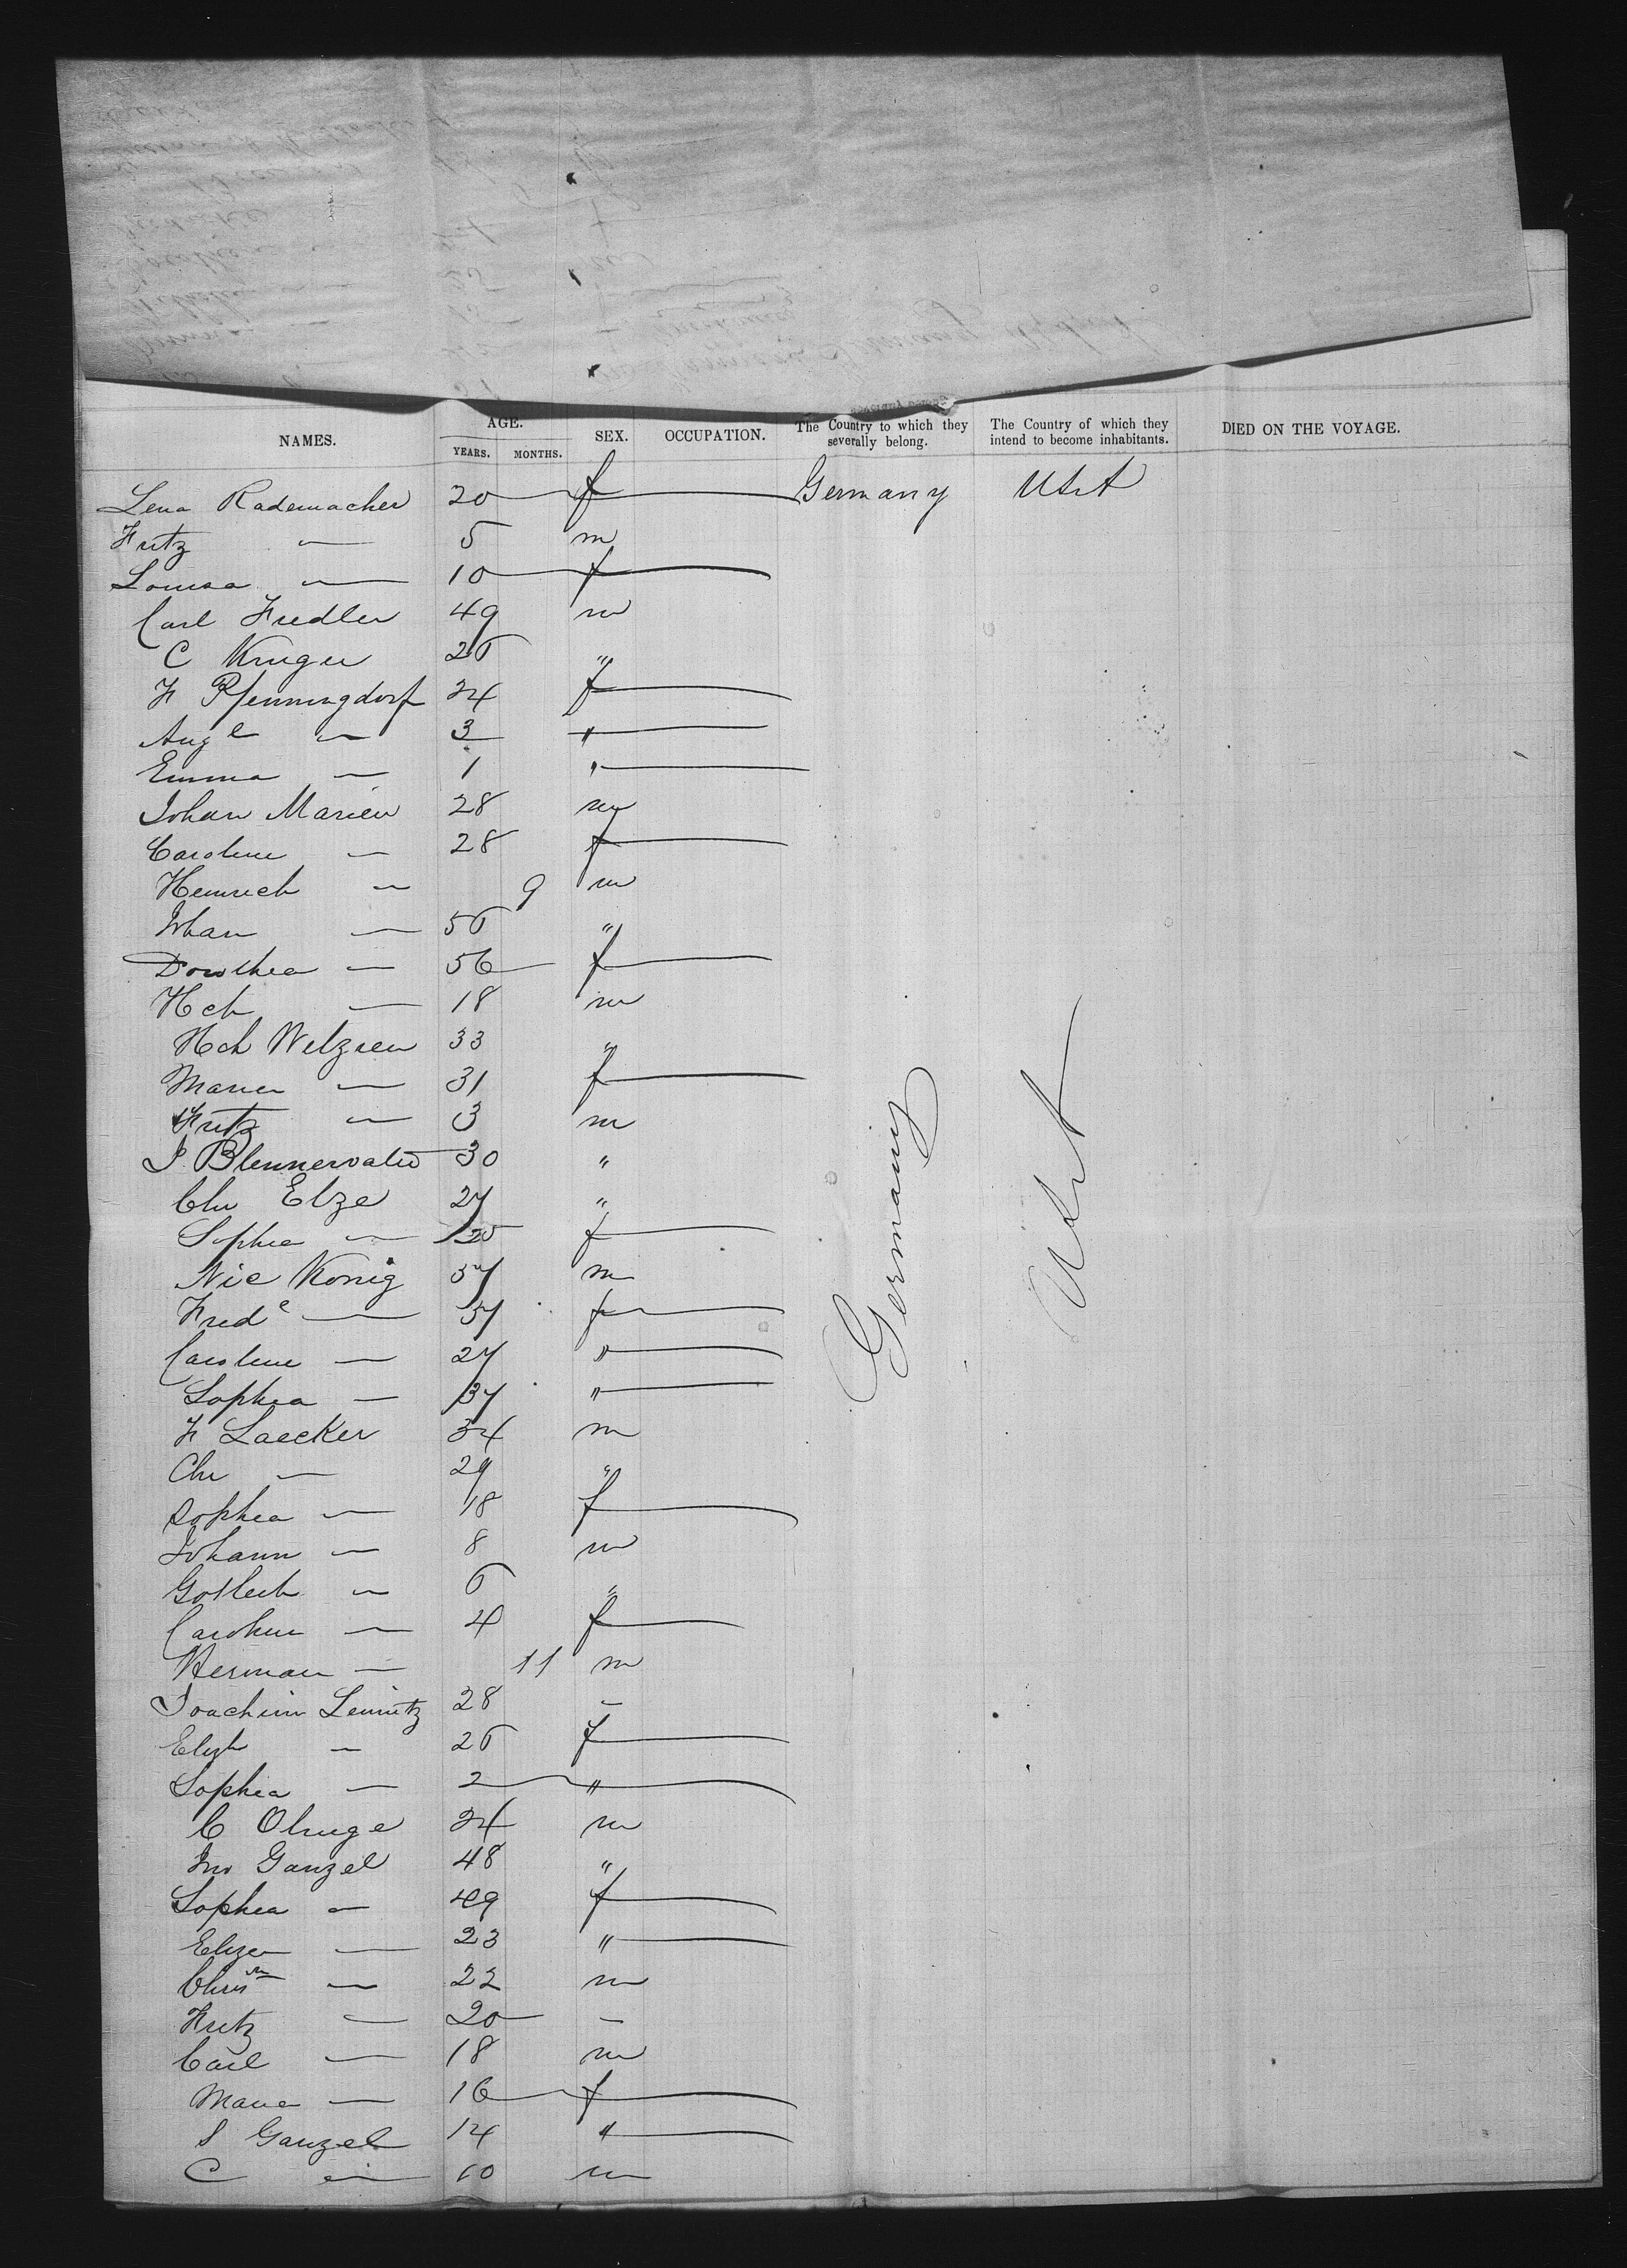 NAMES. AGE. YEARS. MONTHS. SEX. OCCUPATION. The Country to which they severally belong. The Country of which they intend to become inhabitants. DIED ON THE VOYAGE.
Lena Rademacher 20 f Germany USA
Fritz — 5 m
Louisa — 10 f
Carl Fiedler 49 m
C Kruger 26 "
F Pfenningdorf 24 f
Aug e — 3 "
Emma — 1 "
Johan Marien 28 m
Caroline — 28 f
Heinrich — 9 m
Johan — 56 "
Dorothea — 56 f
Hch — 18 m
Hch Welzien 33 "
Maria — 31 f
Fritz — 3 m
J. Blennervater 30 "
Chr Elze 27 "
Sophia — 25 f
Nic Konig 57 m
Fred e — 57 f
Caroline — 27 "
Sophia — 37 "
F Laecker 34 m
Chr — 29 "
Sophia — 18 f
Johann — 8 m
Gotleib — 6 "
Caroline — 4 f
Herman — 11 m
Joachim Lemitz 28 –
Elizh — 26 f
Sophia — 2 "
C Ohuge 24 m
Jno Ganzel 48 "
Sophia — 49 f
Eliza — 23 "
Christn — 22 m
Fritz — 20 –
Carl — 18 m
Maria — 16 f
S Ganzel 14 "
C — 10 m
Germany
USA